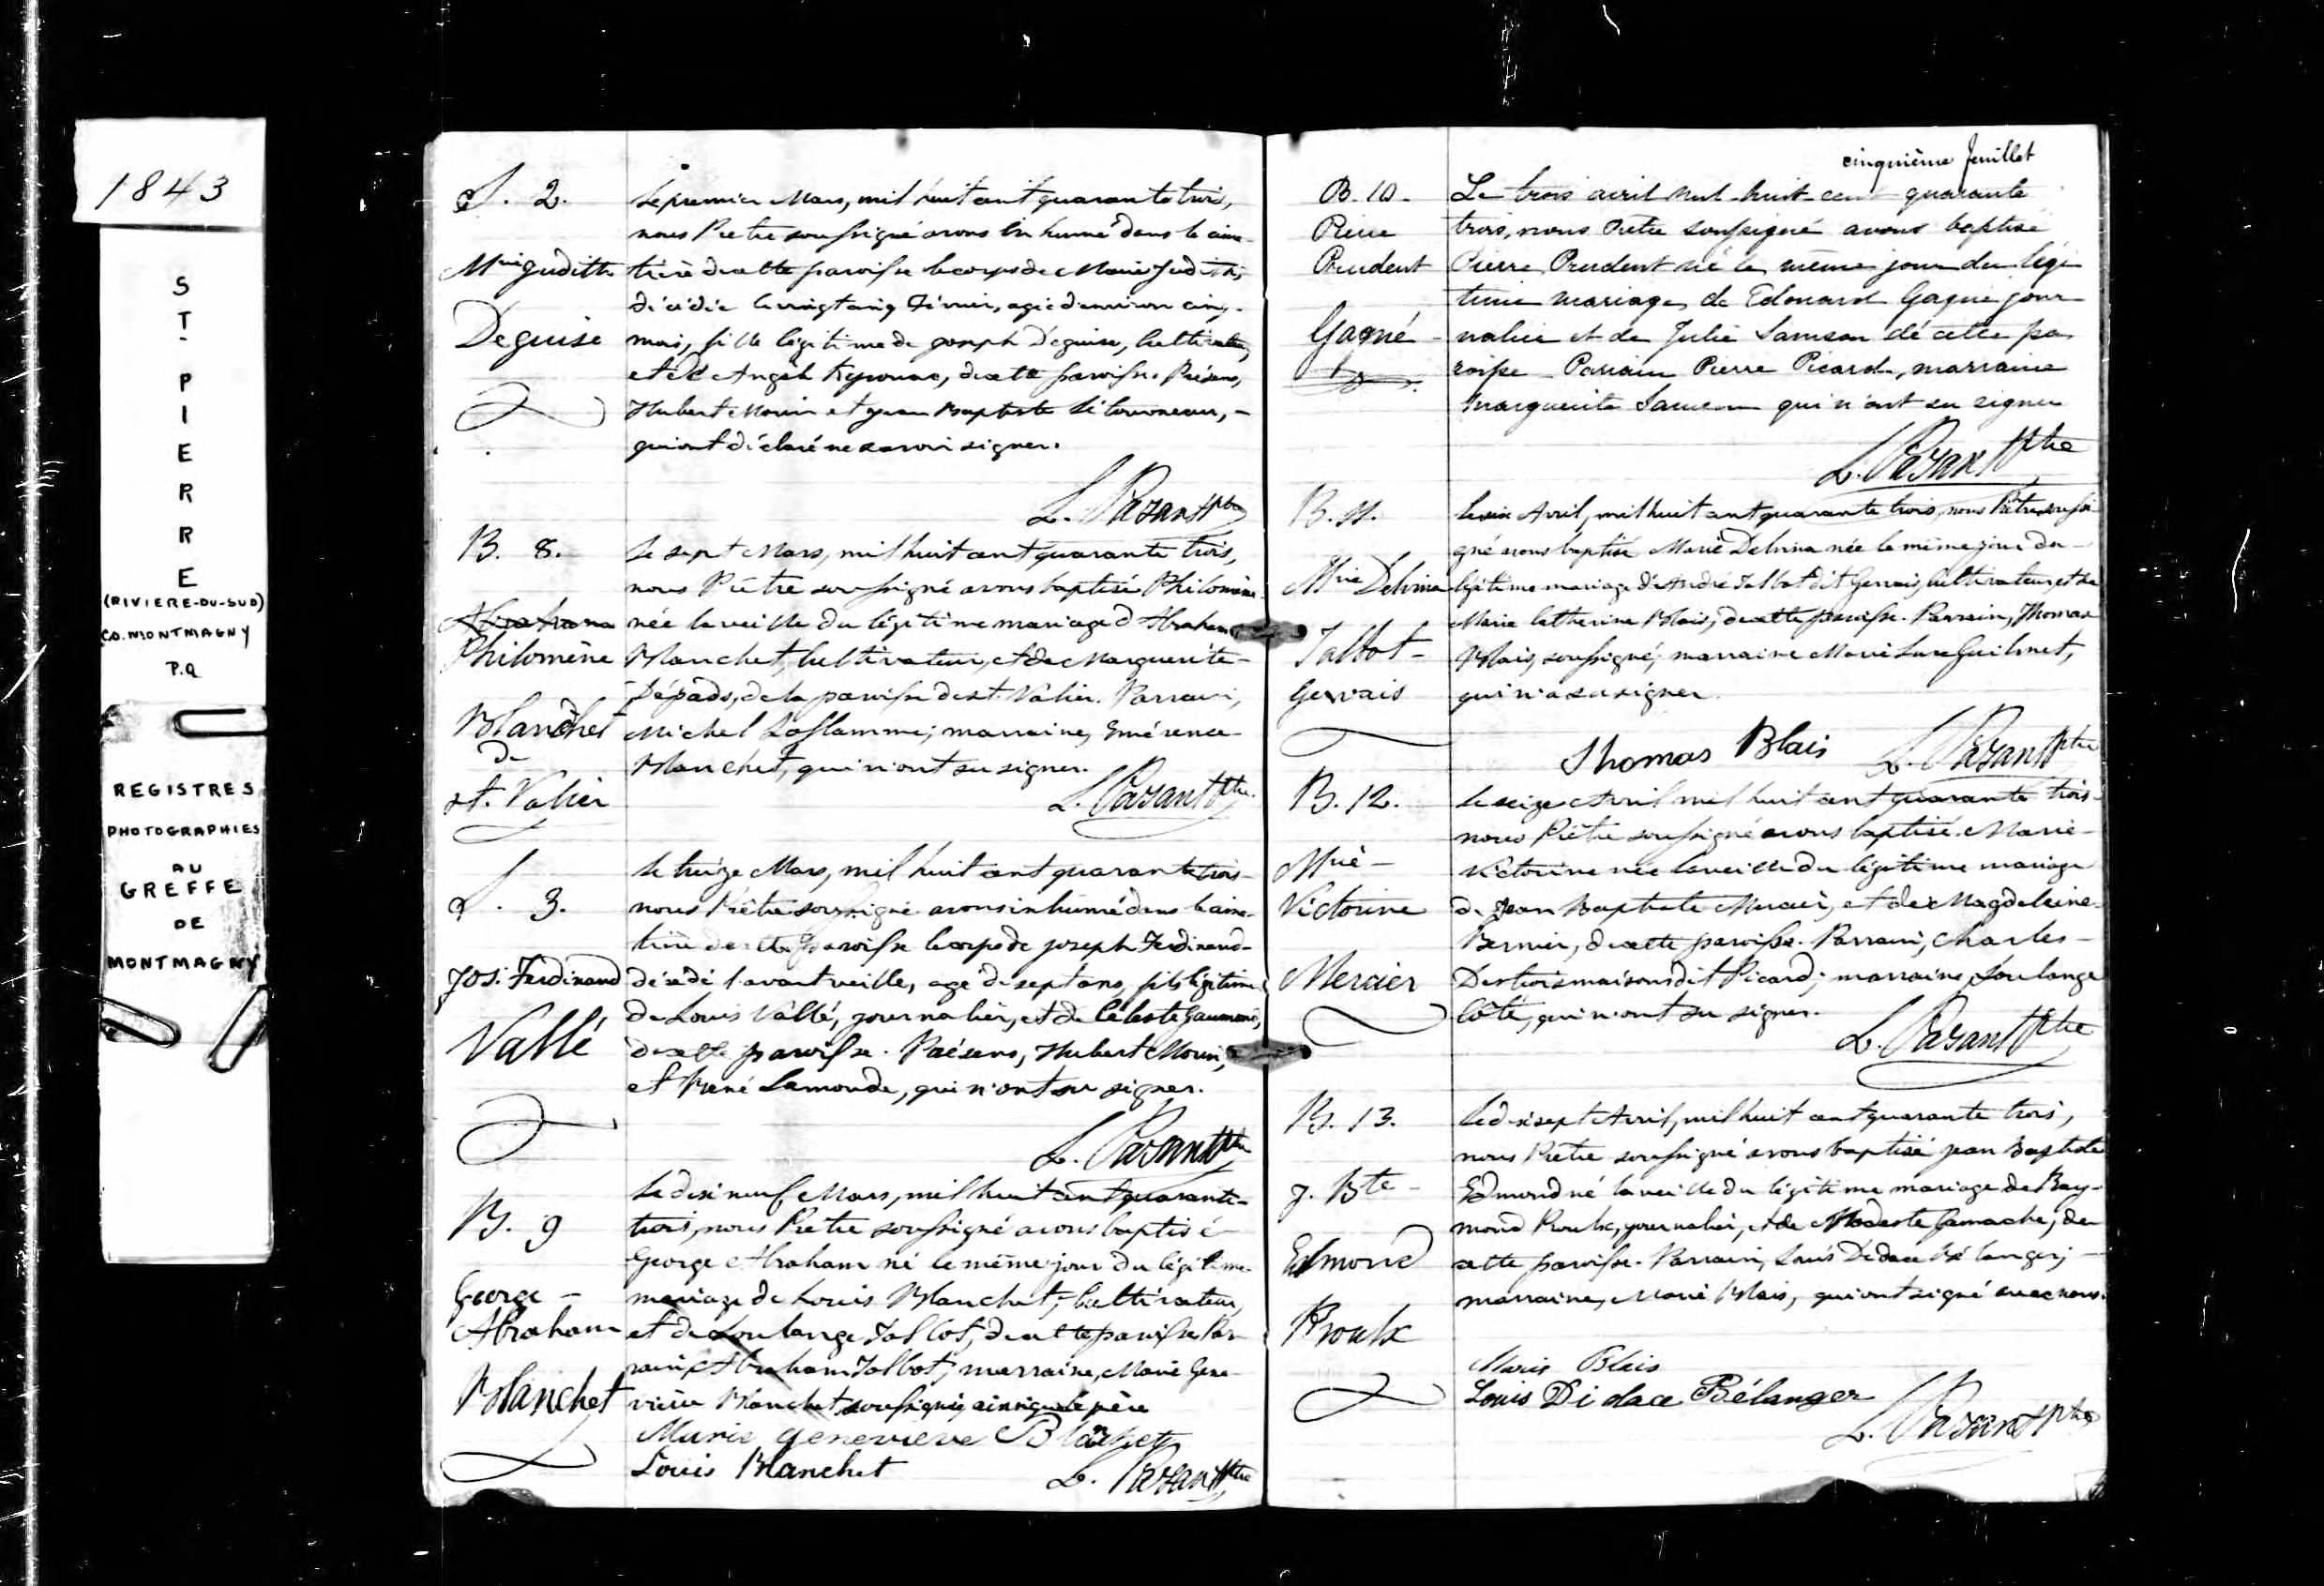 1843
ST-PIERRE
(RIVIERE-DU-SUD)
CO. MONTMAGNY
P.Q
REGISTRES
PHOTOGRAPHIES
AU
GREFFE
DE
MONTMAGNY
S. 2.
Mrie Judith
Deguise
Le premier Mars, mil huit cent quarante trois,
nous Prêtre soussigné avons inhumé dans le cime-
tière de cette paroisse le corps de Marie Judith,
décédée le vingt cinq Février, agée d'environ cinq
mois, fille légitime de Joseph Deguise, cultivateur,
et de Angèle Kyrouac, de cette paroisse. Présens,
Hubert Morin et Jean Baptiste Létourneau, -
qui ont déclaré ne savoir signer.
L. Parant Ptre
B. 8.
Abraham
Philomène
Blanchet
de
St. Valier
Le sept Mars, mil huit cent quarante trois,
nous Prêtre soussigné avons baptisé Philomène
née la veille du légitime mariage d'Abraham
Blanchet, cultivateur, et de Marguerite -
de la paroisse de St. Valier. Parrain,
Michel Laflamme; marraine, Emérence
Blanchet, qui n'ont su signer.
L. Parant Ptre
S. 3.
Jos. Ferdinand
Vallé
Le treize Mars, mil huit cent quarante trois
nous Prêtre soussigné avons inhumé dans le cime-
tière de cette paroisse le corps de Joseph Ferdinand
décédé l'avant veille, agé de sept ans, fils légitime
de Louis Vallé, journalier, et de Céleste Gaumond,
de cette paroisse. Présens, Hubert Morin,
et René Lamonde, qui n'ont su signer.
L. Parant Ptre
B. 9
George -
Abraham
Blanchet
Le dix neuf Mars, mil huit cent quarante-
trois, nous Prêtre soussigné avons baptisé
George Abraham né le même jour du légitime
mariage de Louis Blanchet, cultivateur,
et de Soulange Talbot, de cette paroisse Par-
rain Abraham Talbot; marraine, Marie Gene-
viève Blanchet, soussignés ainsi que le père
Marie genevieve Blanchet
Louis Blanchet
L. Parant Ptre
cinquième feuillet
B. 10.
Pierre
Prudent
Gagné
Le trois avril mil huit cent quarante
trois, nous Prêtre soussigné avons baptisé
Pierre Prudent né le même jour du légi
time mariage de Edouard Gagné jour
nalier et de Julie Samson de cette pa
roisse Parrain Pierre Picard, marraine
Marguerite Samson qui n'ont su signer
L. Parant Ptre
B. 11.
Mrie Delvina
Talbot -
Gervais
Le six Avril, mil huit cent quarante trois, nous Prêtre soussi-
gné avons baptisé Marie Delvina née le même jour du -
légitime mariage d'André Talbot dit Gervais, cultivateur, et de
Marie Catherine Blais, de cette paroisse. Parrain, Thomas
Blais, soussigné; marraine Marie Luce Guilmet,
qui n'a su signer.
Thomas Blais
L. Parant Ptre
B. 12.
Mrie -
Victorine
Mercier
Le seize Avril mil huit cent quarante trois
nous Prêtre soussigné avons baptisé Marie -
Victorine née la veille du légitime mariage
de Jean Baptiste Mercier, et de Magdeleine
Bernier, de cette paroisse. Parrain, Charles -
Destroismaisons dit Picard; marraine, Soulange
Côté, qui n'ont su signer.
L. Parant Ptre
B. 13.
J. Bte -
Edmond
Proulx
Le dixsept Avril, mil huit cent quarante trois,
nous Prêtre soussigné avons baptisé Jean Baptiste
Edmond né la veille du légitime mariage de Ray-
mond Proulx, journalier, et de Modeste Gamache, de
cette paroisse. Parrain, Louis Didace Bélanger; -
marraine, Marie Blais, qui ont signé avec nous.
Marie Blais
Louis Didace Bélanger
L. Parant Ptre